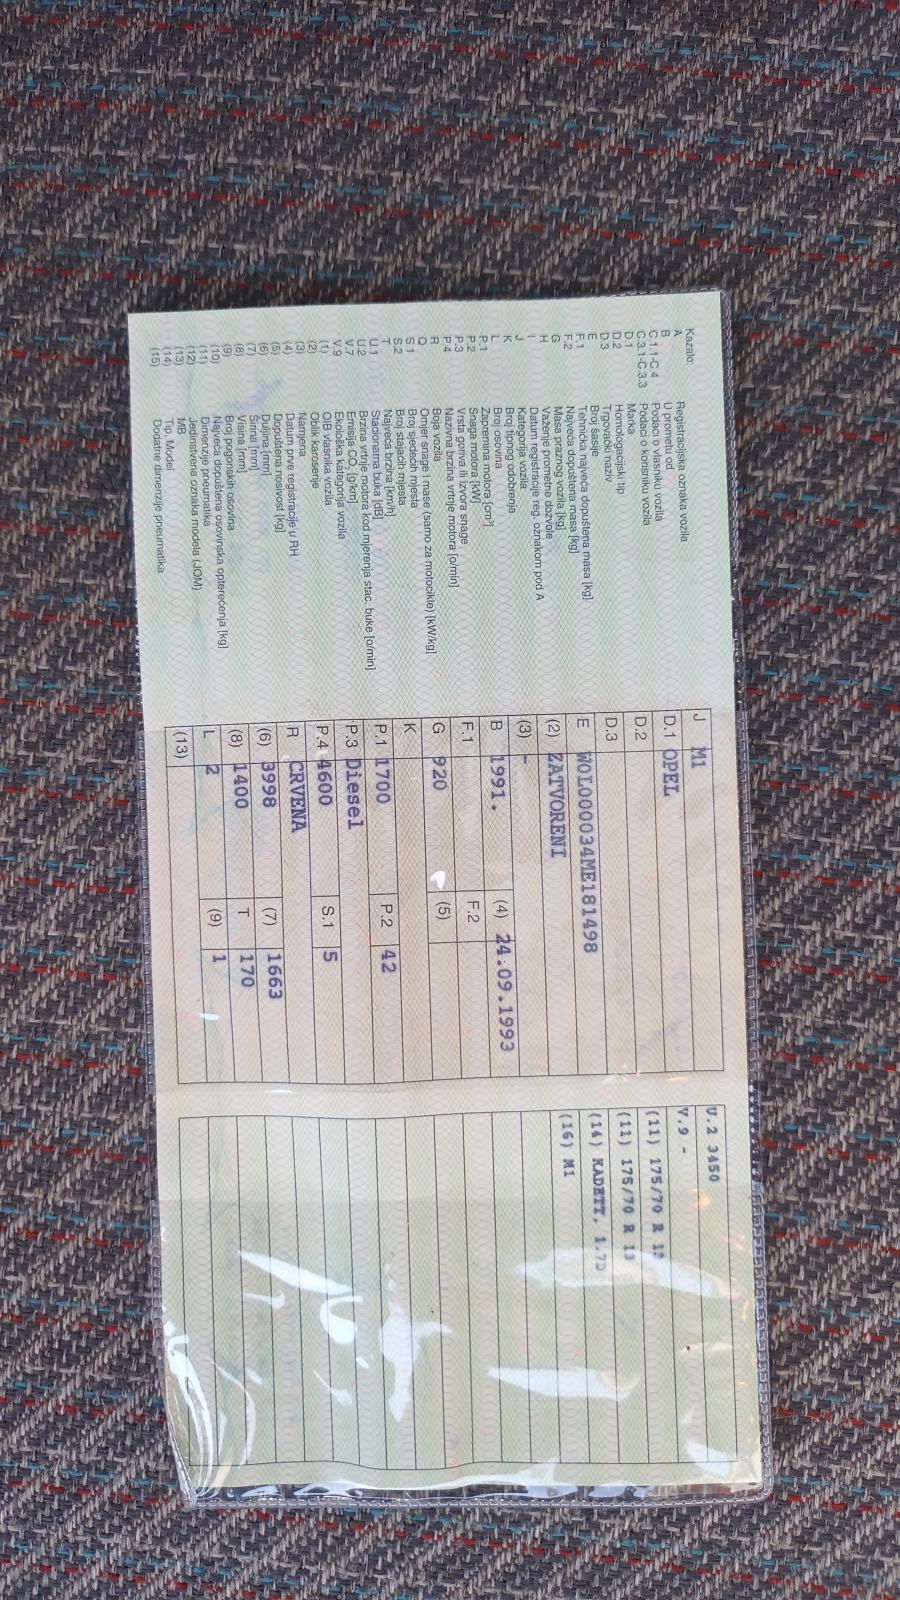 Kazalo:
A Registracijska oznaka vozila
B U prometu od
C.1.1-C.4 Podaci o vlasniku vozila
C.3.1-C.3.3 Podaci o korisniku vozila
D.1 Marka
D.2 Homologacijski tip
D.3 Trgovački naziv
E Broj šasije
F.1 Tehnička najveća dopuštena masa [kg]
F.2 Najveća dopuštena masa [kg]
G Masa praznog vozila [kg]
H Važenje prometne dozvole
I Datum registracije reg. oznakom pod A
J Kategorija vozila
K Broj tipnog odobrenja
L Broj osovina
P.1 Zapremina motora [cm³]
P.2 Snaga motora [kW]
P.3 Vrsta goriva ili izvora snage
P.4 Nazivna brzina vrtnje motora [o/min]
R Boja vozila
Q Omjer snage i mase (samo za motocikle) [kW/kg]
S.1 Broj sjedećih mjesta
S.2 Broj stajaćih mjesta
T Najveća brzina [km/h]
U.1 Stacionarna buka [dB]
U.2 Brzina vrtnje motora kod mjerenja stac. buke [o/min]
V.7 Emisija CO₂ [g/km]
V.9 Ekološka kategorija vozila
(1) OIB vlasnika vozila
(2) Oblik karoserije
(3) Namjena
(4) Datum prve registracije u RH
(5) Dopuštena nosivost [kg]
(6) Duljina [mm]
(7) Širina [mm]
(8) Visina [mm]
(9) Broj pogonskih osovina
(10) Najveća dopuštena osovinska opterećenja [kg]
(11) Dimenzije pneumatika
(12) Jedinstvena oznaka modela (JOM)
(13) MB
(14) Tip, Model
(15) Dodatne dimenzije pneumatika
J M1
D.1 OPEL
D.2
D.3
E WOL000034ME181498
(2) ZATVORENI
(3) -
B 1991. (4) 24.09.1993
F.1 F.2
G 920 (5)
K
P.1 1700 P.2 42
P.3 Diesel
P.4 4600 S.1 5
R CRVENA
(6) 3998 (7) 1663
(8) 1400 T 170
L 2 (9) 1
(13)
U.2 3450
V.9 -
(11) 175/70 R 13
(11) 175/70 R 13
(14) KADETT, 1.7D
(16) M1